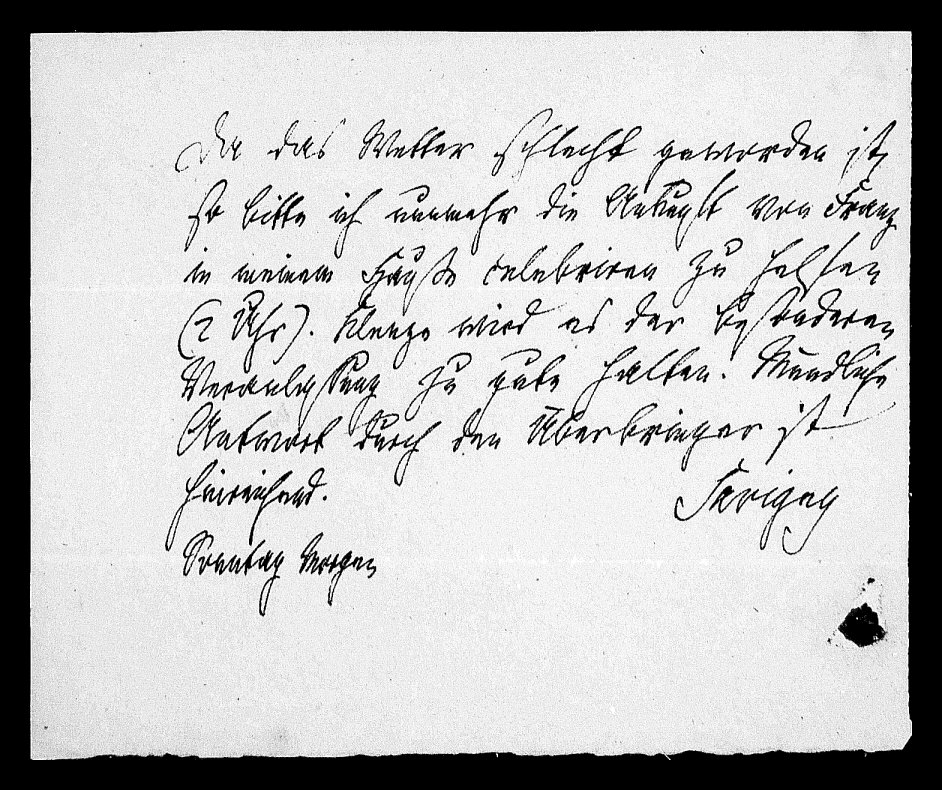 Da das Wetter schlecht geworden ist,
so bitte ich nunmehr die Ankunft von Franz
in meinem Hause celebriren zu helfen
(2 Uhr). Klenze wird es der besonderen
Veranlassung zu gute halten. Mündliche
Antwort durch den Überbringer ist
hinreichend.
Savigny
Sonntag Morgen